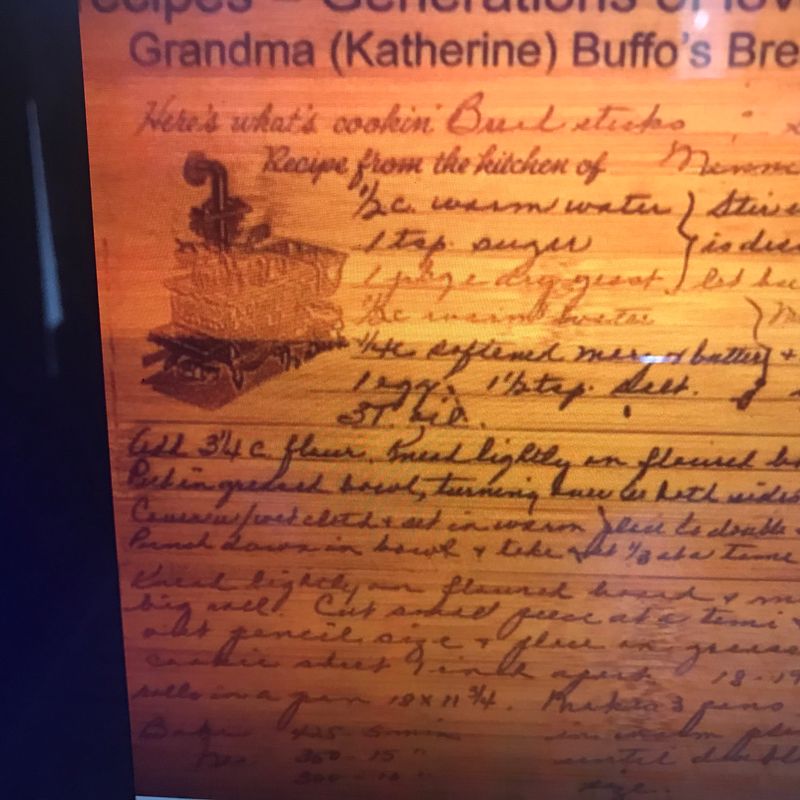 ecipes – Generations of lov
Grandma (Katherine) Buffo's Bre
Here's what's cookin' Bread sticks
Recipe from the kitchen of Minni
1/2 c. warm water } Stir
1 tsp. sugar is diss
1 pkge dry yeast let
1/2 c warm water
1/4 c softened marg or butter +
1 egg. 1 1/2 tsp. Salt.
3 T. oil.
Add 3 1/4 c flour. Knead lightly on floured
Put in greased bowl, turning over both sides
Cover w/wet cloth & set in warm place to double
Punch down in bowl & take 1/3 at a time
Knead lightly on floured board &
big roll. Cut small piece at a time &
pencil size & place on grease
cookie sheet 1 inch apart 18-19
rolls in a pan 18 x 11 3/4. Makes 3 pans
Bake 425 5 min in warm
350 - 15 " until
300 - 10 " size.